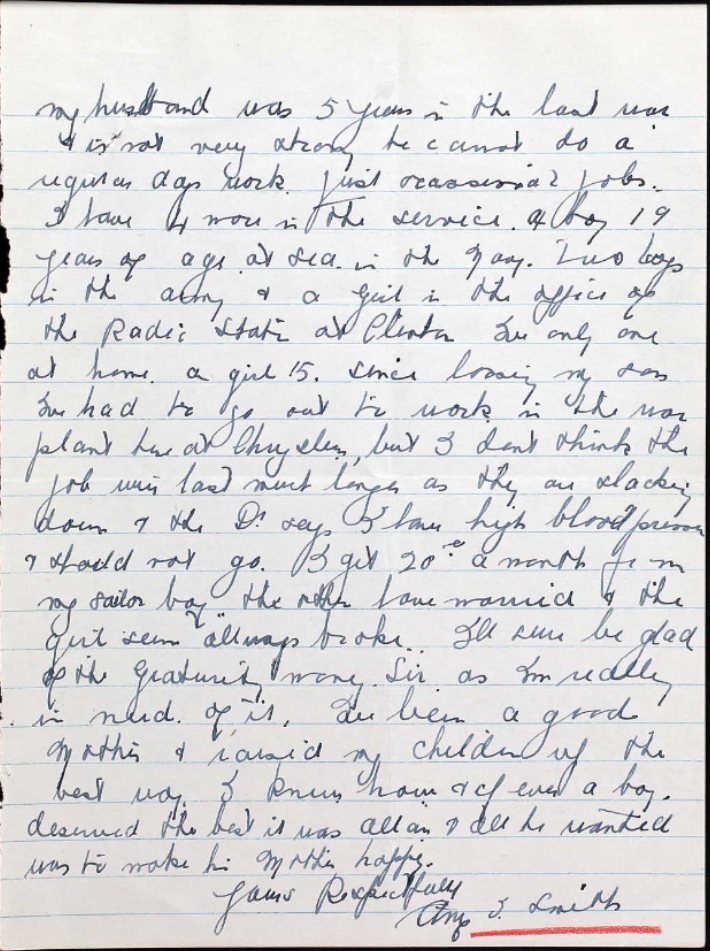 my husband was 5 years in the last war
& is not very strong he cannot do a
regular days work. Just ocassional jobs.
I have 4 more in the service. a boy 19
years of age at sea. in the Navy. Two boys
in the army & a girl in the office of
the Radio Statin at Clinton Ive only one
at home. a girl 15. since loosing my son
Ive had to go out to work in the war
plant here at Chrysler, but I dont think the
job will last much longer as they are slacking
down & the Dr says I have high blood pressure
& should not go. I get 20 a month from
my sailor boy the other have married & the
girl seems allways broke. Ill sure be glad
of the Gratuity money Sir as Im really
in need of it. Ive been a good
Mother & raised my children up the
best way I knew how & if ever a boy.
deserved the best it was Allan & all he wanted
was to make his Mother happy.
Yours Respectfully
Smith